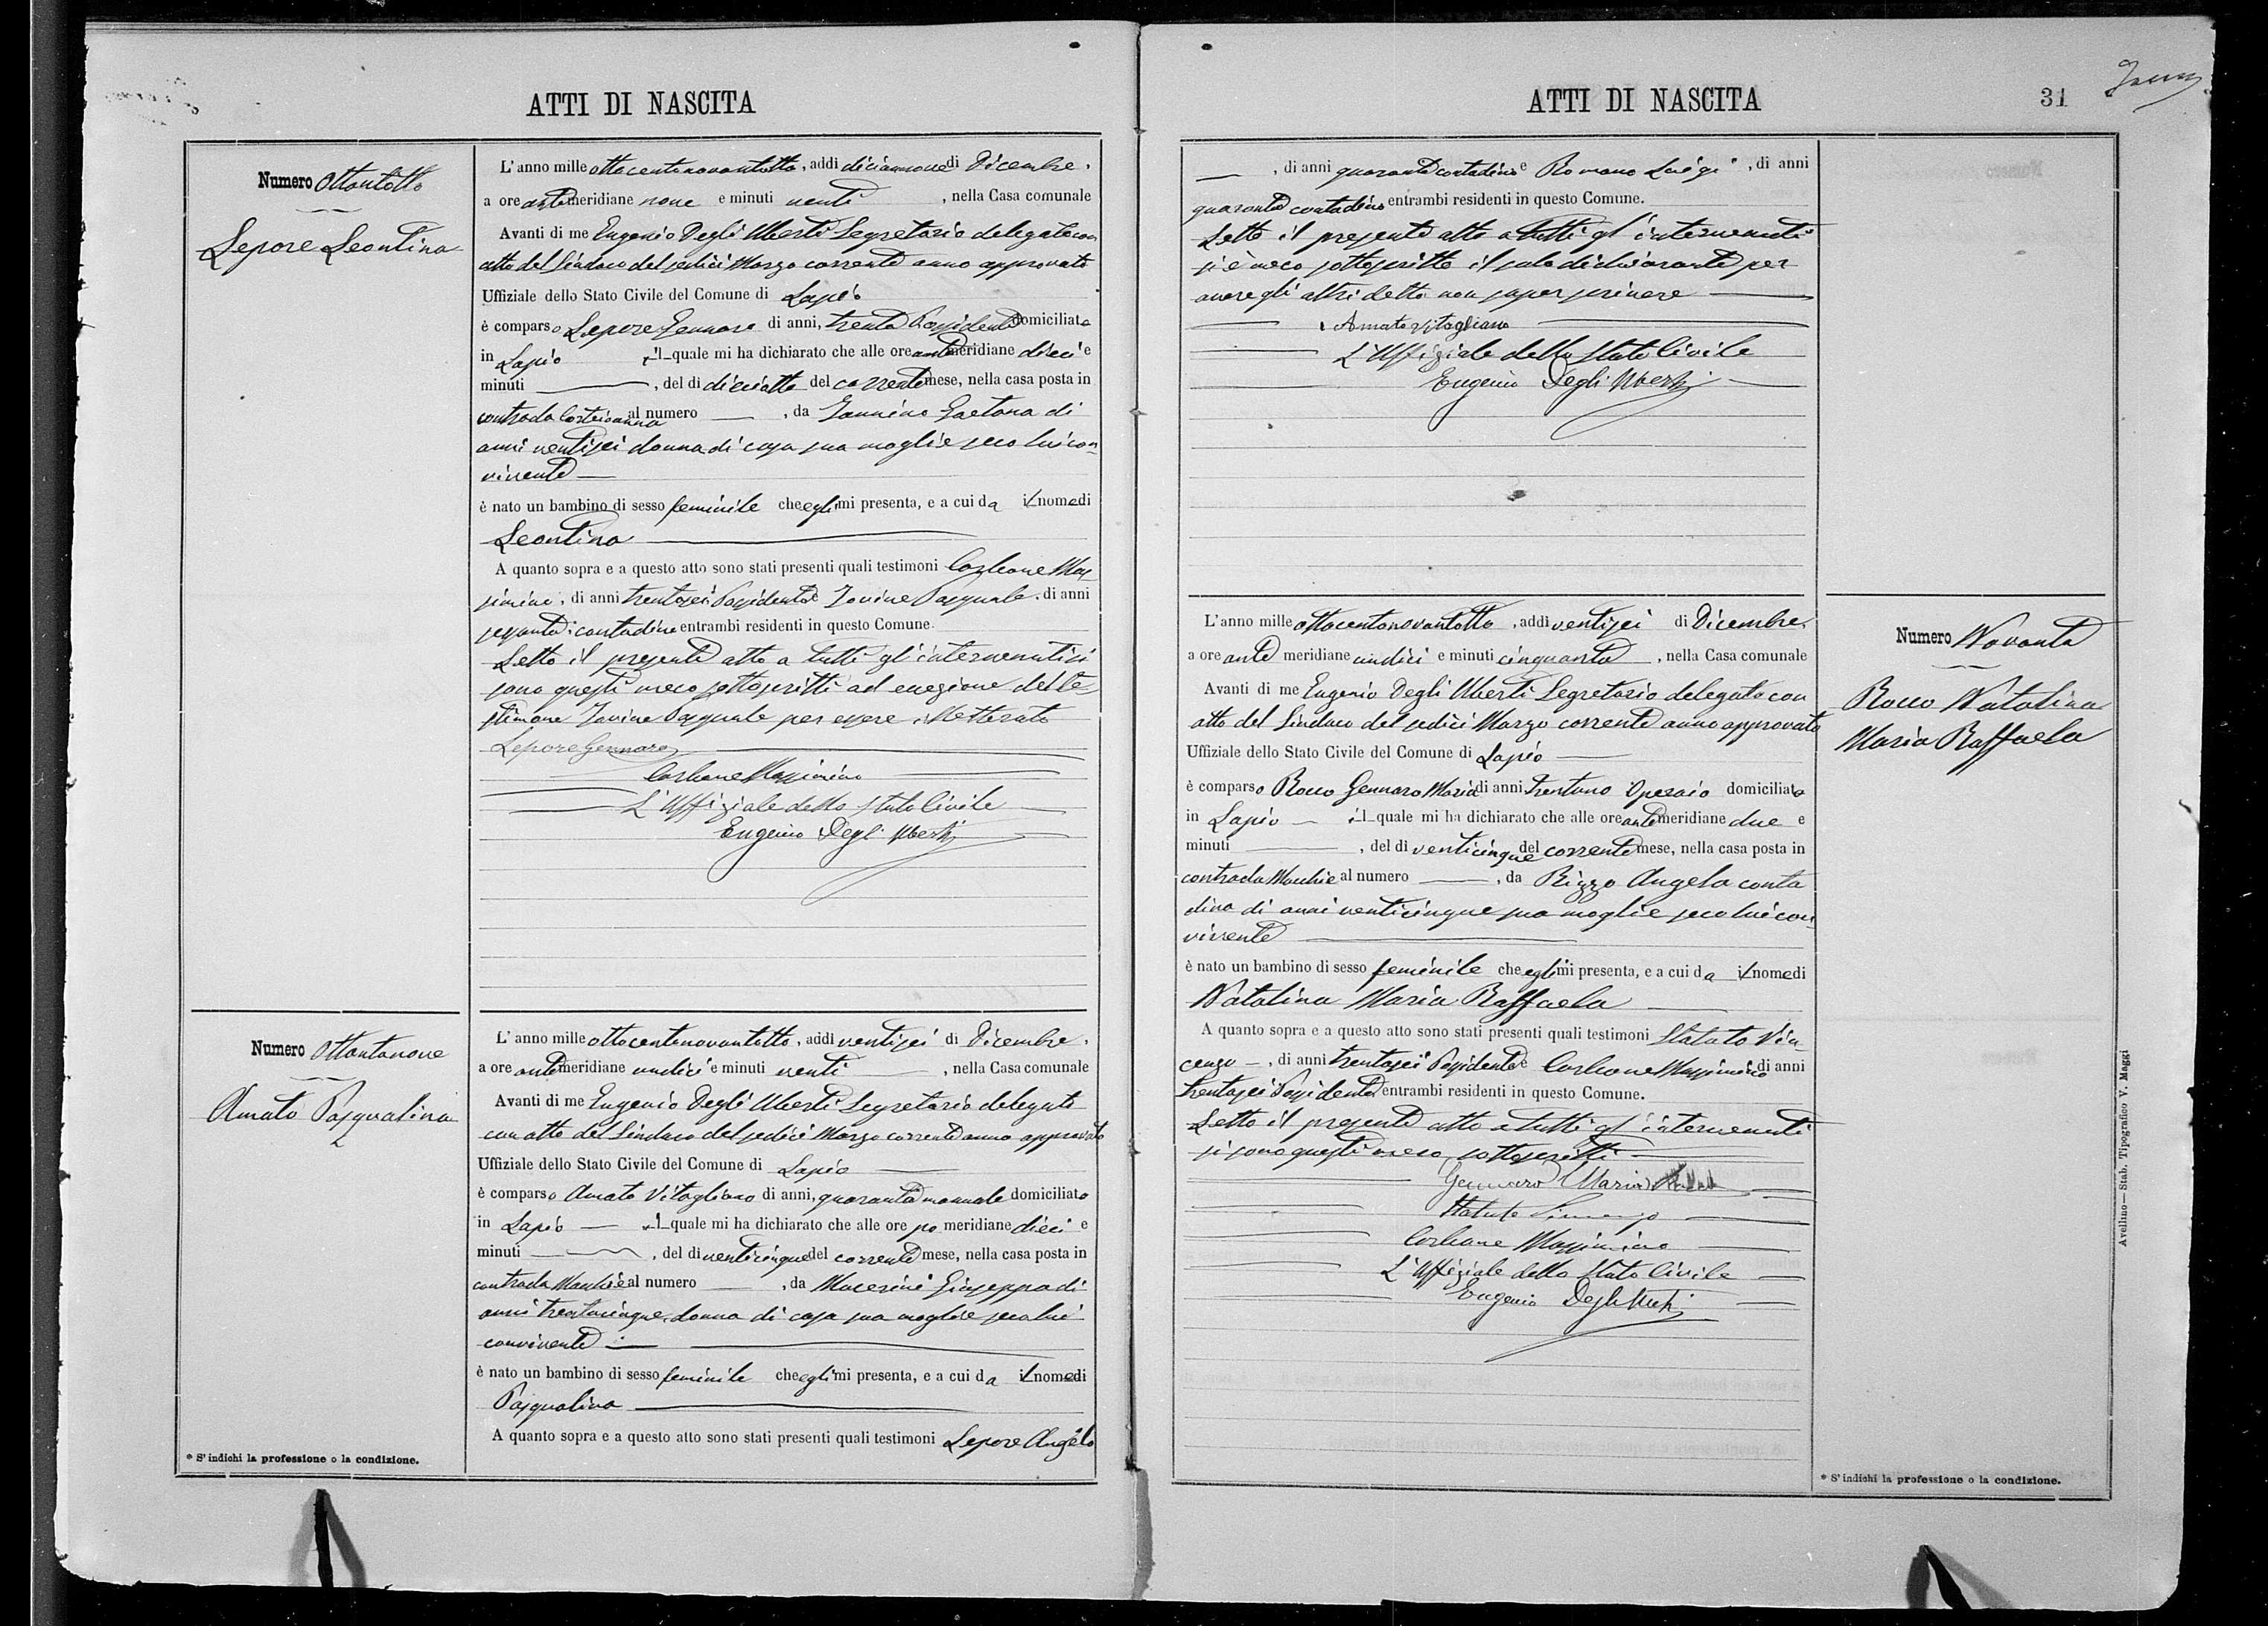 ATTI DI NASCITA
Numero Ottantotto
Lepore Leontina
L'anno mille ottocentonovantotto, addì diciannove di Dicembre,
a ore antimeridiane nove e minuti venti, nella Casa comunale
Avanti di me Eugenio Degli Uberti Segretario delegato con
atto del Sindaco del sedici Marzo corrente anno approvato
Uffiziale dello Stato Civile del Comune di Lapio
è comparso Lepore Gennaro di anni, trenta Possidente domiciliato
in Lapio il quale mi ha dichiarato che alle ore antimeridiane dieci e
minuti —, del dì dieciotto del corrente mese, nella casa posta in
contrada al numero —, da Iannino Gaetana di
anni ventisei donna di casa sua moglie seco lui con-
vivente —
è nato un bambino di sesso feminile che egli mi presenta, e a cui da il nome di
Leontina —
A quanto sopra e a questo atto sono stati presenti quali testimoni Carbone Mas
simino, di anni trentasei Possidente e Iovine Pasquale, di anni
sessanta contadino entrambi residenti in questo Comune.
Letto il presente atto a tutti gli intervenuti si
sono questi meco sottoscritti ad eccezione del te-
stimone Iovine Pasquale per essere illetterato
Lepore Gennaro
Carbone Massimino
L'Uffiziale dello Stato Civile
Eugenio Degli Uberti
Numero Ottantanove
Amato Pasqualina
L'anno mille ottocentonovantotto, addì ventisei di Dicembre,
a ore antimeridiane undici e minuti venti —, nella Casa comunale
Avanti di me Eugenio Degli Uberti Segretario delegato
con atto del Sindaco del sedici Marzo corrente anno approvato
Uffiziale dello Stato Civile del Comune di Lapio —
è comparso Amato Vitagliano di anni, quaranta manuale domiciliato
in Lapio — il quale mi ha dichiarato che alle ore po meridiane dieci e
minuti —, del dì venticinque del corrente mese, nella casa posta in
contrada Macchie al numero —, da Macerini Giuseppa di
anni trentacinque, donna di casa sua moglie seco lui
convivente —
è nato un bambino di sesso feminile che egli mi presenta, e a cui da il nome di
Pasqualina —
A quanto sopra e a questo atto sono stati presenti quali testimoni Lepore Angelo
* S'indichi la professione o la condizione.
ATTI DI NASCITA
31
—, di anni quaranta contadino e Romano Luigi, di anni
quaranta contadino entrambi residenti in questo Comune.
Letto il presente atto a tutti gl'intervenuti
si è meco sottoscritto il solo dichiarante per
avere gli altri detto non saper scrivere —
Amato Vitagliano
L'Uffiziale dello Stato Civile
Eugenio Degli Uberti
L'anno mille ottocentonovantotto, addì ventisei di Dicembre,
a ore ante meridiane undici e minuti cinquanta, nella Casa comunale
Avanti di me Eugenio Degli Uberti Segretario delegato con
atto del Sindaco del sedici Marzo corrente anno approvato
Uffiziale dello Stato Civile del Comune di Lapio —
è comparso Rocco Gennaro Maria di anni trentuno Operaio domiciliato
in Lapio — il quale mi ha dichiarato che alle ore antimeridiane due e
minuti —, del dì venticinque del corrente mese, nella casa posta in
contrada Macchie al numero —, da Rizzo Angela conta
dina di anni venticinque sua moglie seco lui con-
vivente —
è nato un bambino di sesso feminile che egli mi presenta, e a cui da il nome di
Natalina Maria Raffaela —
A quanto sopra e a questo atto sono stati presenti quali testimoni Statuto Vin-
cenzo —, di anni trentasei Possidente e Carbone Massimino di anni
trentasei Possidente entrambi residenti in questo Comune.
Letto il presente atto a tutti gl'intervenuti
si sono questi meco sottoscritti —
Gennaro Maria
Statuto
Carbone Massimino
L'Uffiziale dello Stato Civile
Eugenio Degli Uberti
Numero Novanta
Rocco Natalina
Maria Raffaela
* S'indichi la professione o la condizione.
Avellino — Stab. Tipografico V. Maggi